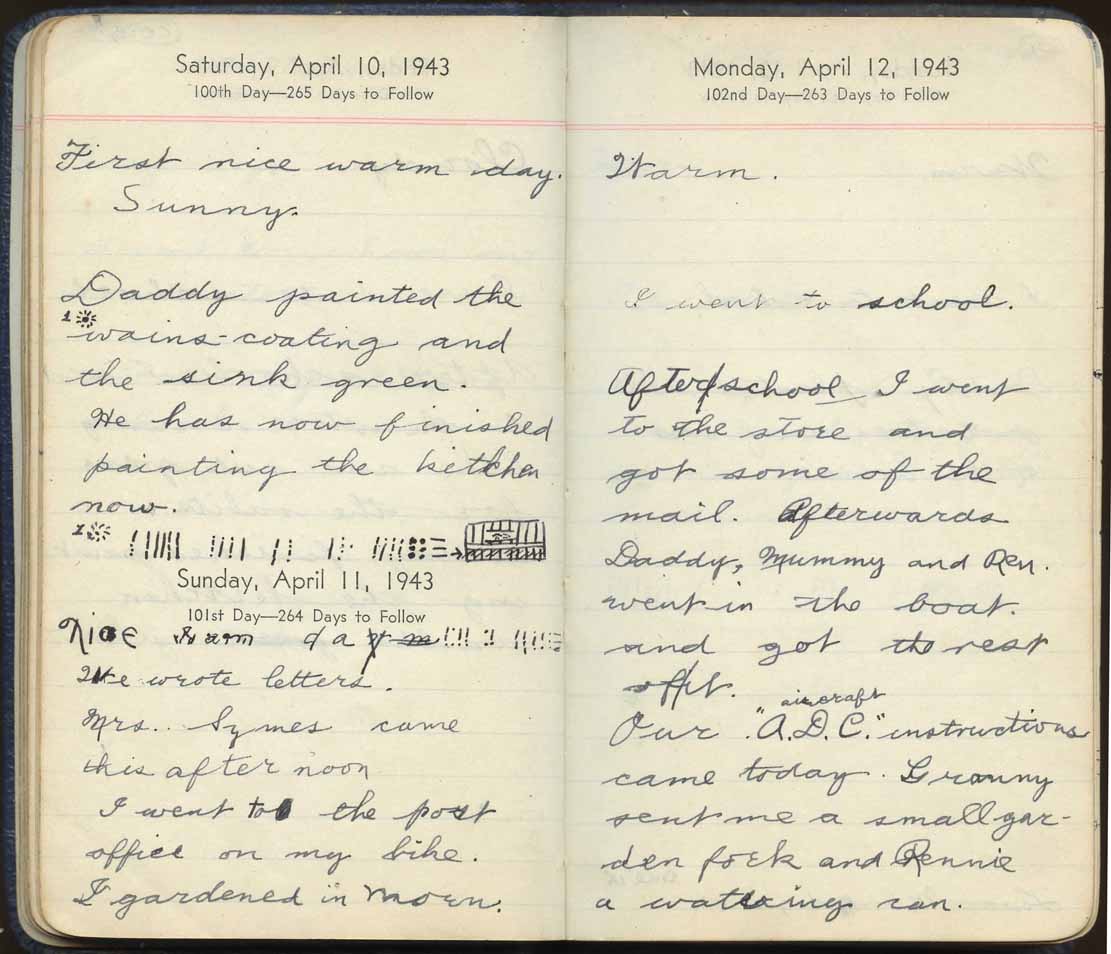 Saturday, April 10, 1943
100th Day—265 Days to Follow
First nice warm day.
Sunny.
Daddy painted the
1
wains-coating and
the sink green.
He has now finished
painting the kitchen
now.
Sunday, April 11, 1943
101st Day—264 Days to Follow
Nice warm day
We wrote letters.
Mrs. Symes came
this afternoon
I went to the post
office on my bike.
I gardened in morn.
Monday, April 12, 1943
102nd Day—263 Days to Follow
Warm.
I went to school.
After school I went
to the store and
got some of the
mail. Afterwards
Daddy, Mummy and Ren.
went in the boat.
and got the rest
of it.
aircraft
Our "A.D.C." instructions
came today. Granny
sent me a small gar-
den fork and Rennie
a watering can.